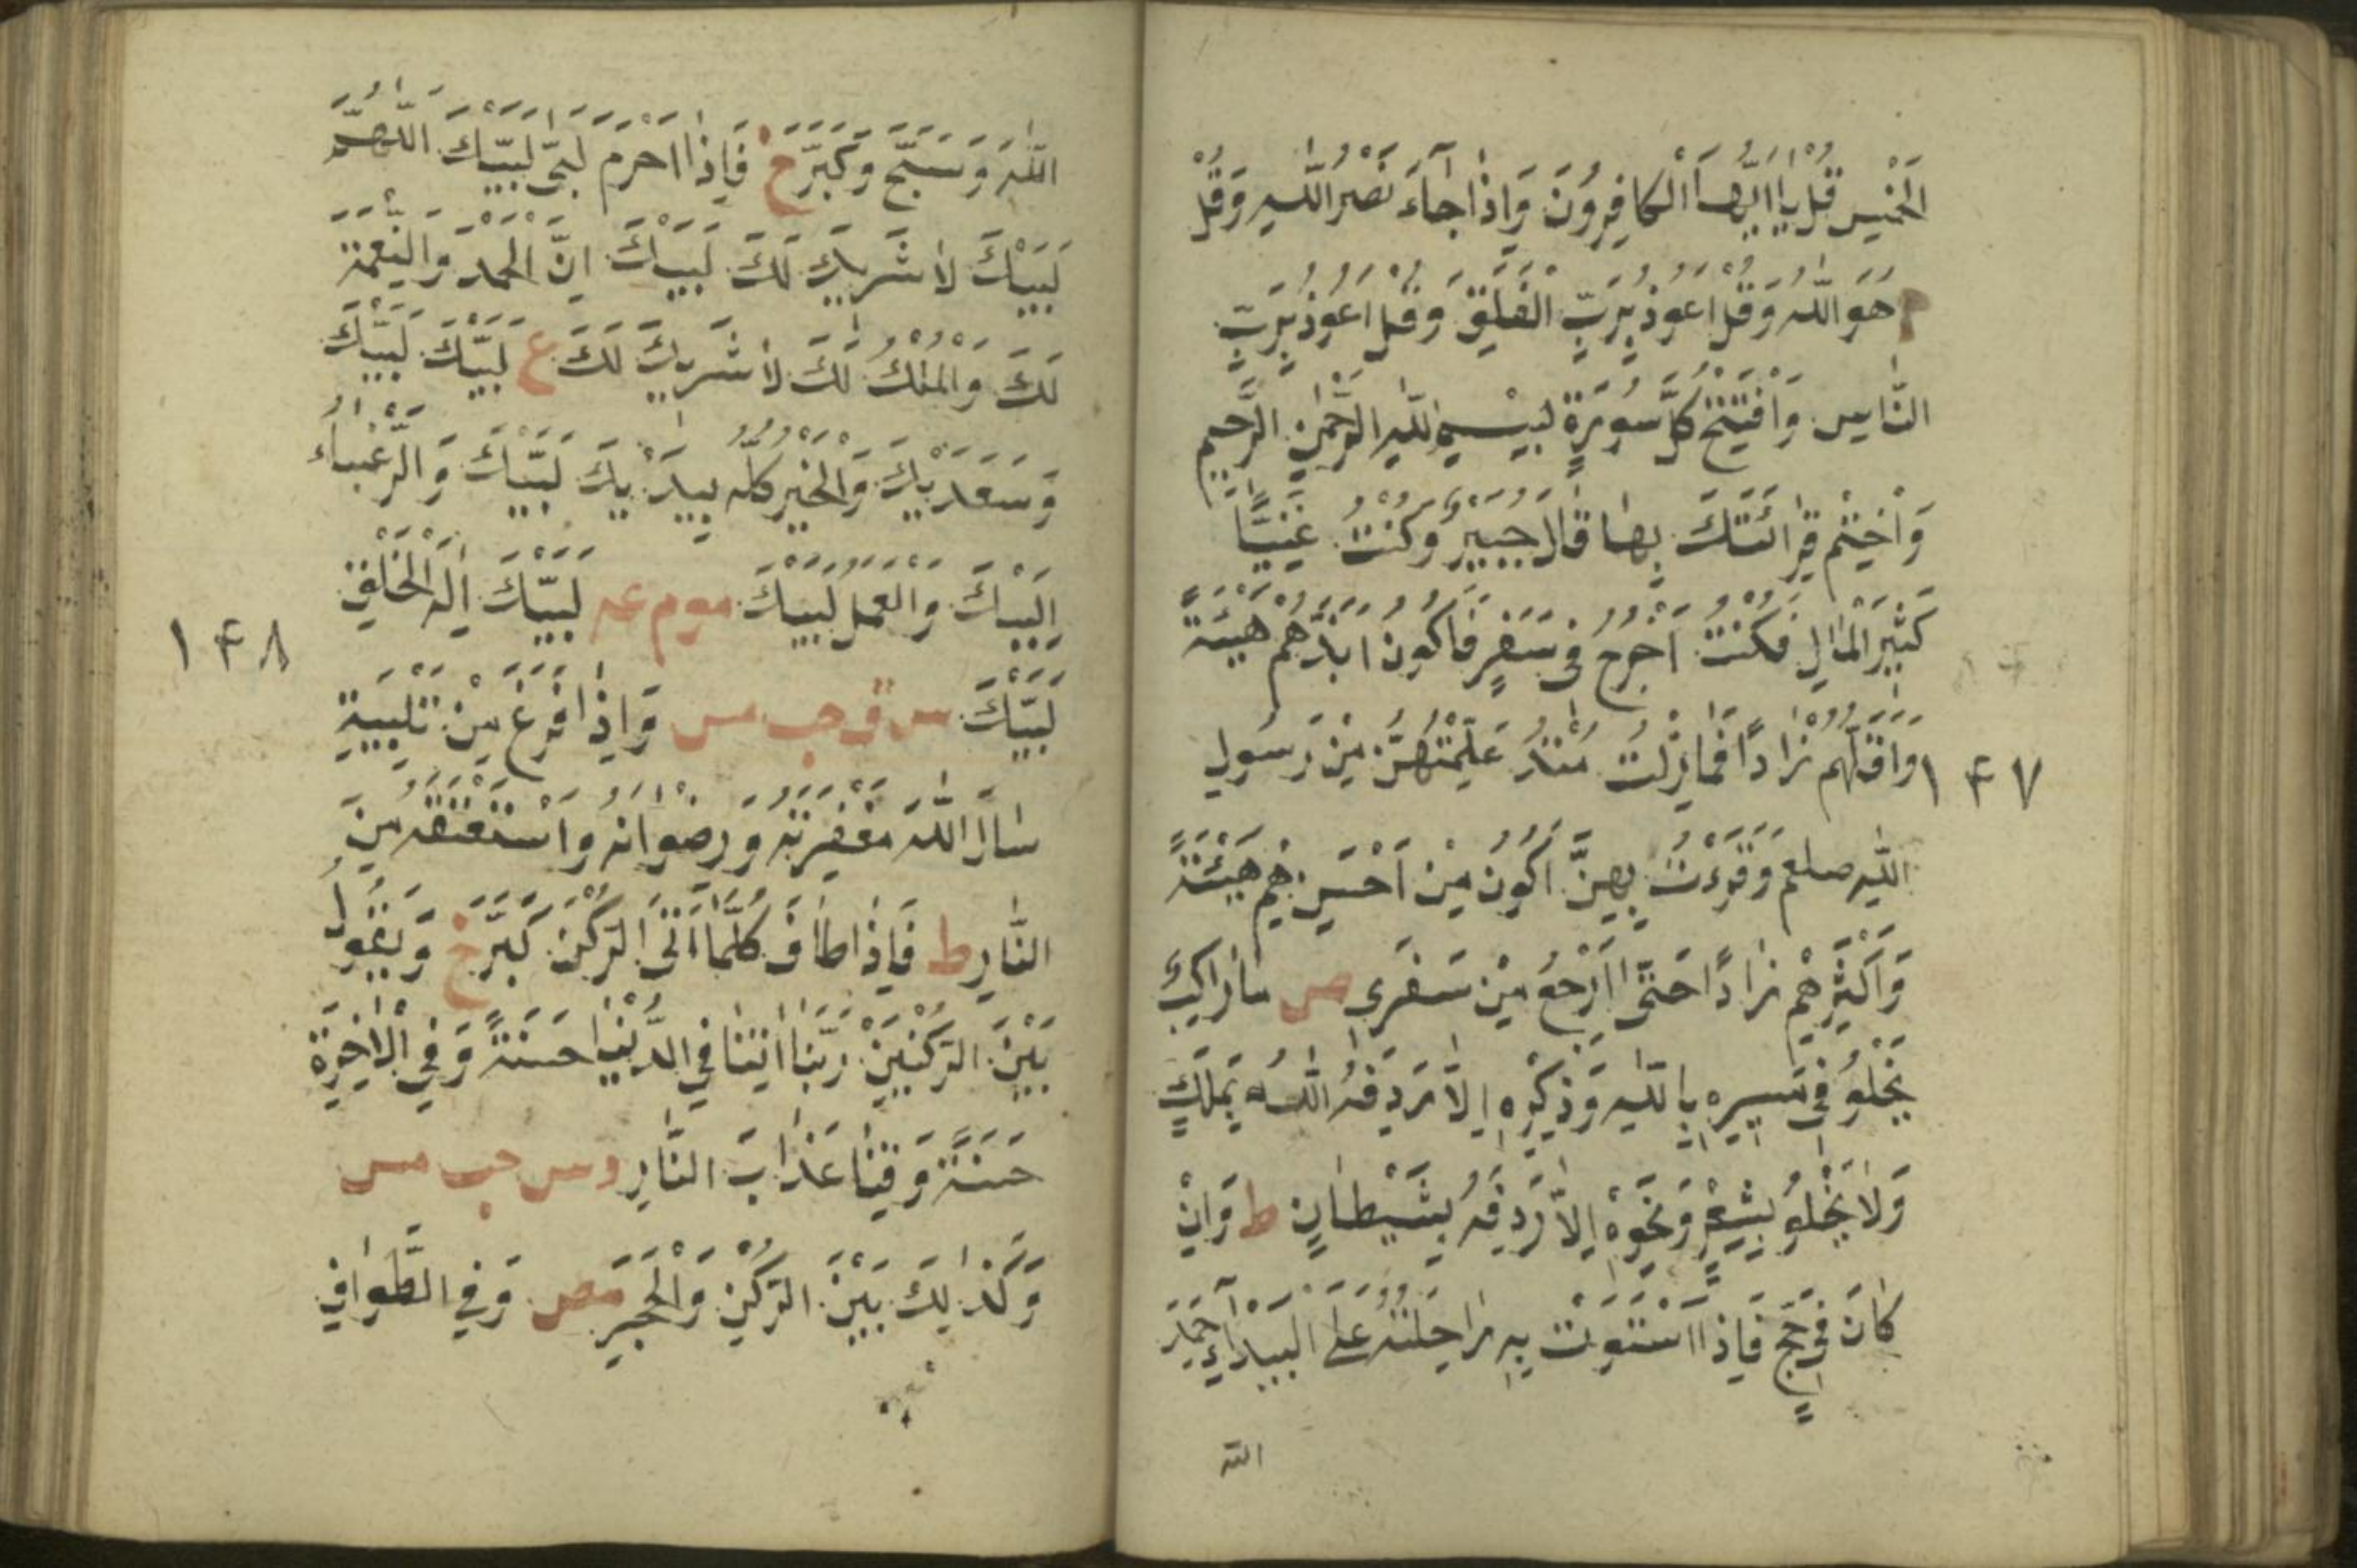 الْخَمْسَ قُلْ يَا اَيُّهَا الْكَافِرُوْنَ وَاِذَا جَآءَ نَصْرُ اللّٰهِ وَقُلْ
هُوَ اللّٰهُ وَقُلْ اَعُوْذُ بِرَبِّ الْفَلَقِ وَقُلْ اَعُوْذُ بِرَبِّ
النَّاسِ وَافْتَتِحْ كُلَّ سُوْرَةٍ بِبِسْمِ اللّٰهِ الرَّحْمٰنِ الرَّحِيْمِ
وَاخْتِمْ قِرَائَتَكَ بِهَا قَالَ جُبَيْرٌ وَكُنْتُ غَنِيًّا
كَثِيْرَ الْمَالِ فَكُنْتُ اَخْرُجُ فِى سَفَرٍ فَاَكُوْنُ اَبَذَّهُمْ هَيْئَةً
١٤٧
وَاَقَلَّهُمْ زَادًا فَمَا زِلْتُ مُنْذُ عُلِّمْتُهُنَّ مِنْ رَسُوْلِ
اللّٰهِ صلعم وَقَرَءْتُ بِهِنَّ اَكُوْنُ مِنْ اَحْسَنِهِمْ هَيْئَةً
وَاَكْثَرِهِمْ زَادًا حَتّٰى اَرْجِعَ مِنْ سَفَرِى ص مَا رَاكِبٌ
يَخْلُوْ فِى مَسِيْرِهِ بِاللّٰهِ وَذِكْرِهِ اِلَّا رَدِفَهُ اللّٰهُ بِمَلَكٍ
وَلَا يَخْلُوْ بِشِعْرٍ وَنَحْوِهِ اِلَّا رَدِفَهُ بِشَيْطَانٍ ط وَاِنْ
كَانَ فِى حَجٍّ فَاِذَا اسْتَوَتْ بِهِ رَاحِلَتُهُ عَلَى الْبَيْدَآءِ حَمِدَ
اللّٰه
اللّٰهَ وَسَبَّحَ وَكَبَّرَ خ فَاِذَا اَحْرَمَ لَبّٰى لَبَّيْكَ اللّٰهُمَّ
لَبَّيْكَ لَا شَرِيْكَ لَكَ لَبَّيْكَ اِنَّ الْحَمْدَ وَالنِّعْمَةَ
لَكَ وَالْمُلْكَ لَكَ لَا شَرِيْكَ لَكَ ع لَبَّيْكَ لَبَّيْكَ
وَسَعْدَيْكَ وَالْخَيْرُ كُلُّهُ بِيَدَيْكَ لَبَّيْكَ وَالرَّغْبَاءُ
اِلَيْكَ وَالْعَمَلُ لَبَّيْكَ مو م عه لَبَّيْكَ اِلٰهَ الْخَلْقِ
١٤٨
لَبَّيْكَ س ق حب مس وَاِذَا فَرَغَ مِنْ تَلْبِيَةِ
سَاَلَ اللّٰهَ مَغْفِرَتَهُ وَرِضْوَانَهُ وَاسْتَعْتَقَهُ مِنَ
النَّارِ ط فَاِذَا طَافَ كُلَّمَا اَتَى الرُّكْنَ كَبَّرَ خ وَيَقُوْلُ
بَيْنَ الرُّكْنَيْنِ رَبَّنَا اٰتِنَا فِى الدُّنْيَا حَسَنَةً وَفِى الْاٰخِرَةِ
حَسَنَةً وَقِنَا عَذَابَ النَّارِ د س حب مس
وَكَذٰلِكَ بَيْنَ الرُّكْنِ وَالْحَجَرِ مص وَفِى الطَّوَافِ